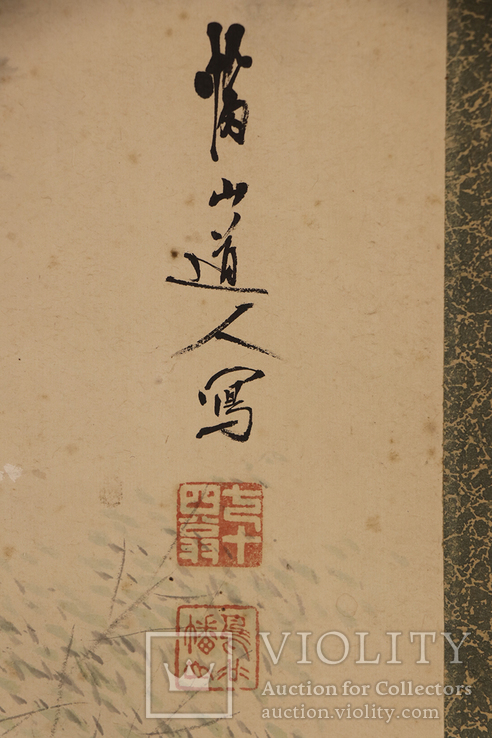 山道人寫
七十
四翁
VIOLITY
Auction for Collectors
auction.violity.com